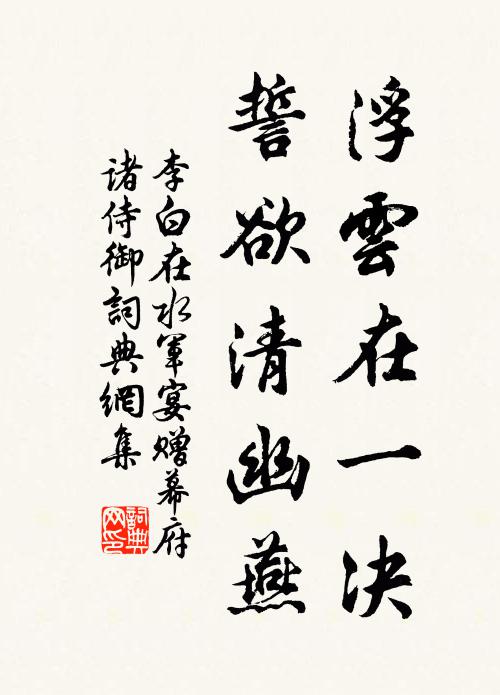 浮雲在一决
誓欲清幽燕
李白在水軍宴赠幕府
诸侍御詞典網集
詞典网印